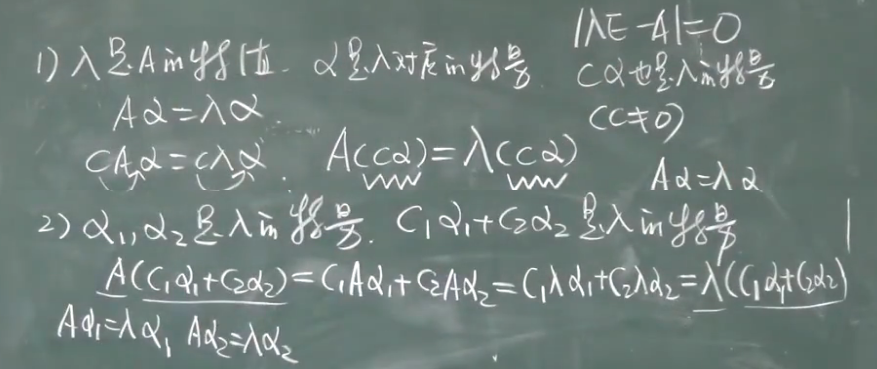 |λE-A|=0
1) λ是A的特值. α是λ对应的特量. cα也是λ的特量
Aα=λα. (c≠0)
cAα=cλα. A(cα)=λ(cα)
Aα=λα
2) α₁,α₂是λ的特量. C₁α₁+C₂α₂是λ的特量
A(C₁α₁+C₂α₂)=C₁Aα₁+C₂Aα₂=C₁λα₁+C₂λα₂=λ(C₁α₁+C₂α₂)
Aα₁=λα₁ Aα₂=λα₂